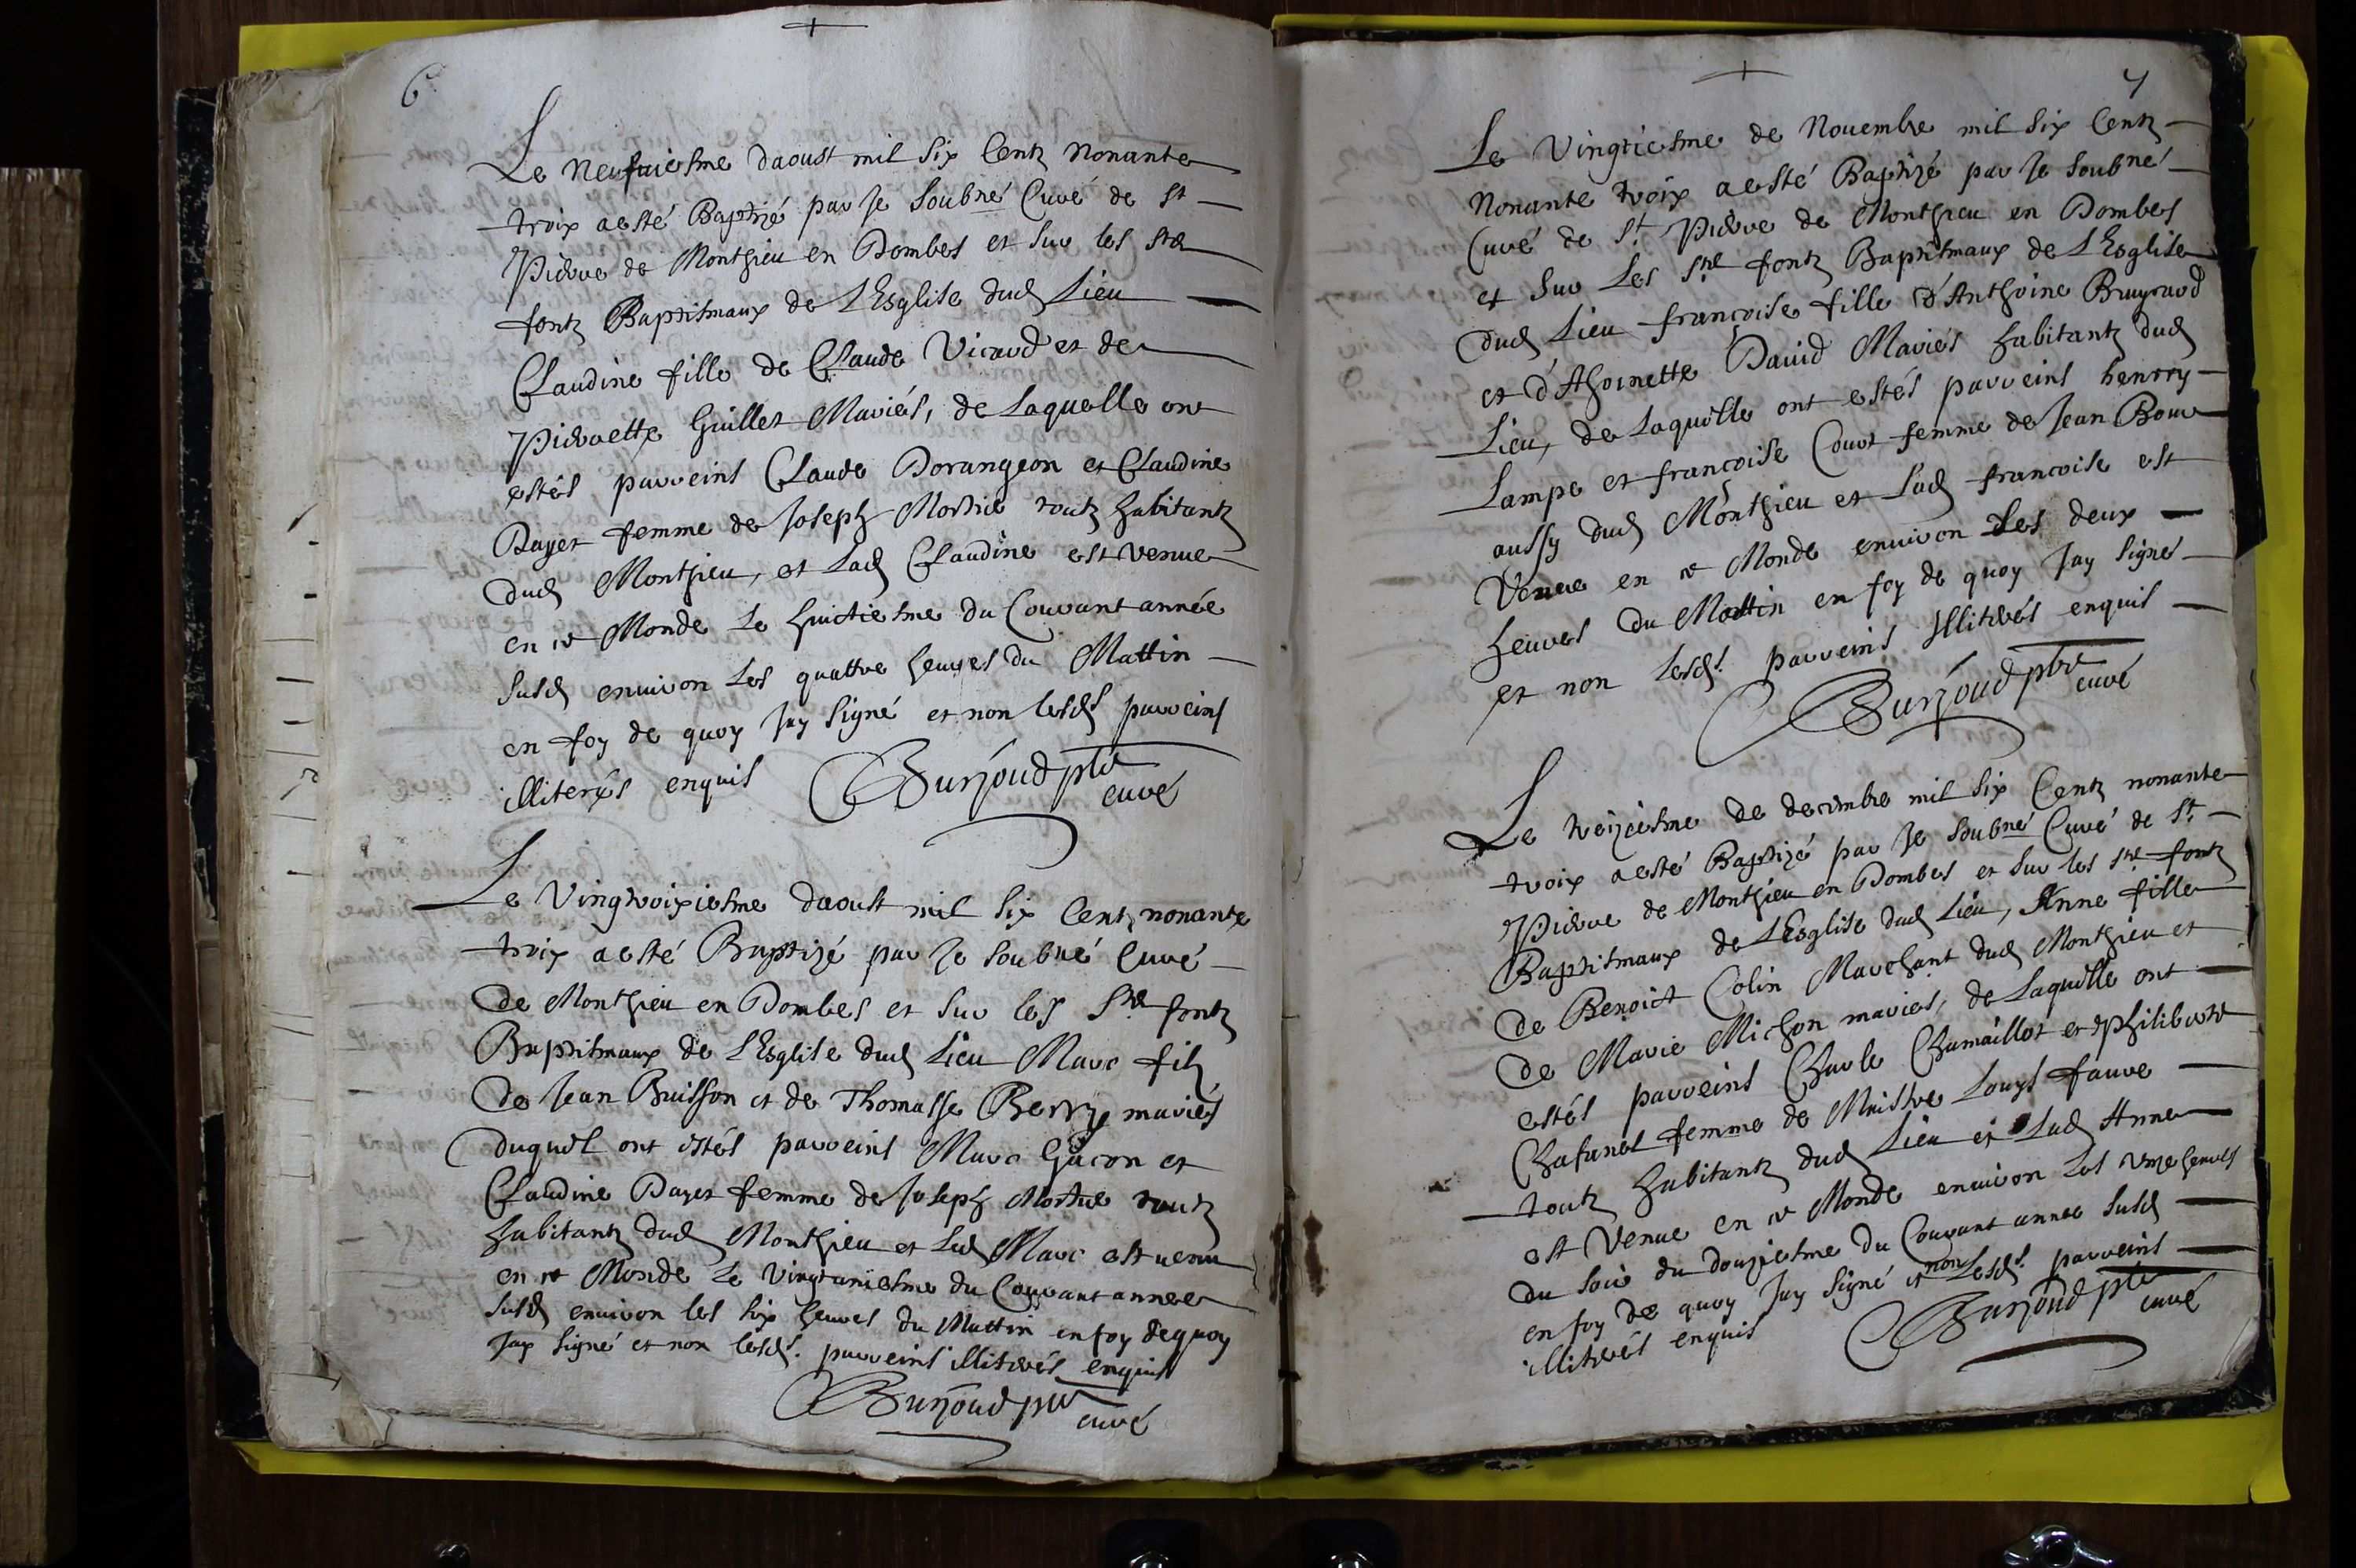 6
Le neufuiesme daoust mil six Centz nonante
troix aesté Baptizé par Je Soubné Curé de St
Pierre de Monthieu en Dombes et sur les stes
fontz Baptismaux de L'Esglise dud Lieu
Claudine fille de Claude Vicard et de
Pierrette Guillet Mariés, de Laquelle ont
estés parreins Claude Dorangeon et Claudine
Payet femme de Joseph Mortie toutz habitantz
dud Monthieu, et Lad Claudine est venue
en ce Monde Le huictiesme du Courant année
susd enuiron Les quattre heures du Mattin
en foy de quoy Jay signé et non lesds parreins
illiterés enquis Burjoud ptre
curé
Le Vingtroixiesme daoust mil six Centz nonante
troix aesté Baptizé par Je soubné Curé
de Monthieu en Dombes et sur les Stes fontz
Baptismaux de L'Esglise dud Lieu Marc filz
de Jean Buisson et de Thomasse Berry mariés
duquel ont estés parreins Marc Gacon et
Claudine Payet femme de Joseph Mortie toutz
habitantz dud Monthieu et Led Marc est uenu
en ce Monde Le Vingtuniesme du Courant année
susd enuiron les six heures du Mattin en foy de quoy
Jay signé et non lesds. parreins illiterés enquis
Burjoud ptre
curé
7
Le Vingtiesme de Nouembre mil six Centz
Nonante troix aesté Baptizé par Je Soubné
Curé de St Pierre de Monthieu en Dombes
et sur Les Stes fontz Baptismaux de L'Esglise
dud Lieu françoise fille d'Anthoine Bruyrard
et d'Athoinette Dauid Mariés habitantz dud
Lieu, de Laquelle ont estés parreins henrry
Lampe et françoise Court femme de Jean Bour
aussy dud Monthieu et Lad francoise est
Venue en ce Monde enuiron Les deux
heures du Mattin en foy de quoy Jay signé
et non Lesds. parreins illiterés enquis
Burjoud ptre
curé
Le treiziesme de decembre mil six Centz nonante
troix aesté Baptizé par Je soubné Curé de St
Pierre de Monthieu en Dombes et sur les stes fontz
Baptismaux de L'Esglise dud Lieu, Anne fille
de Benoict Colin Marchant dud Monthieu et
de Marie Michon mariés, de Laquelle ont
estés parreins Charle Chamaillot et Philiberte
Chafanel femme de Maistre Louys faure
toutz habitantz dud Lieu et Lad Anne
est Venue en ce Monde enuiron Les unze heures
du soir du douziesme du Courant année susd
en foy de quoy Jay signé et non Lesds. parreins
illiterés enquis Burjoud ptre
curé